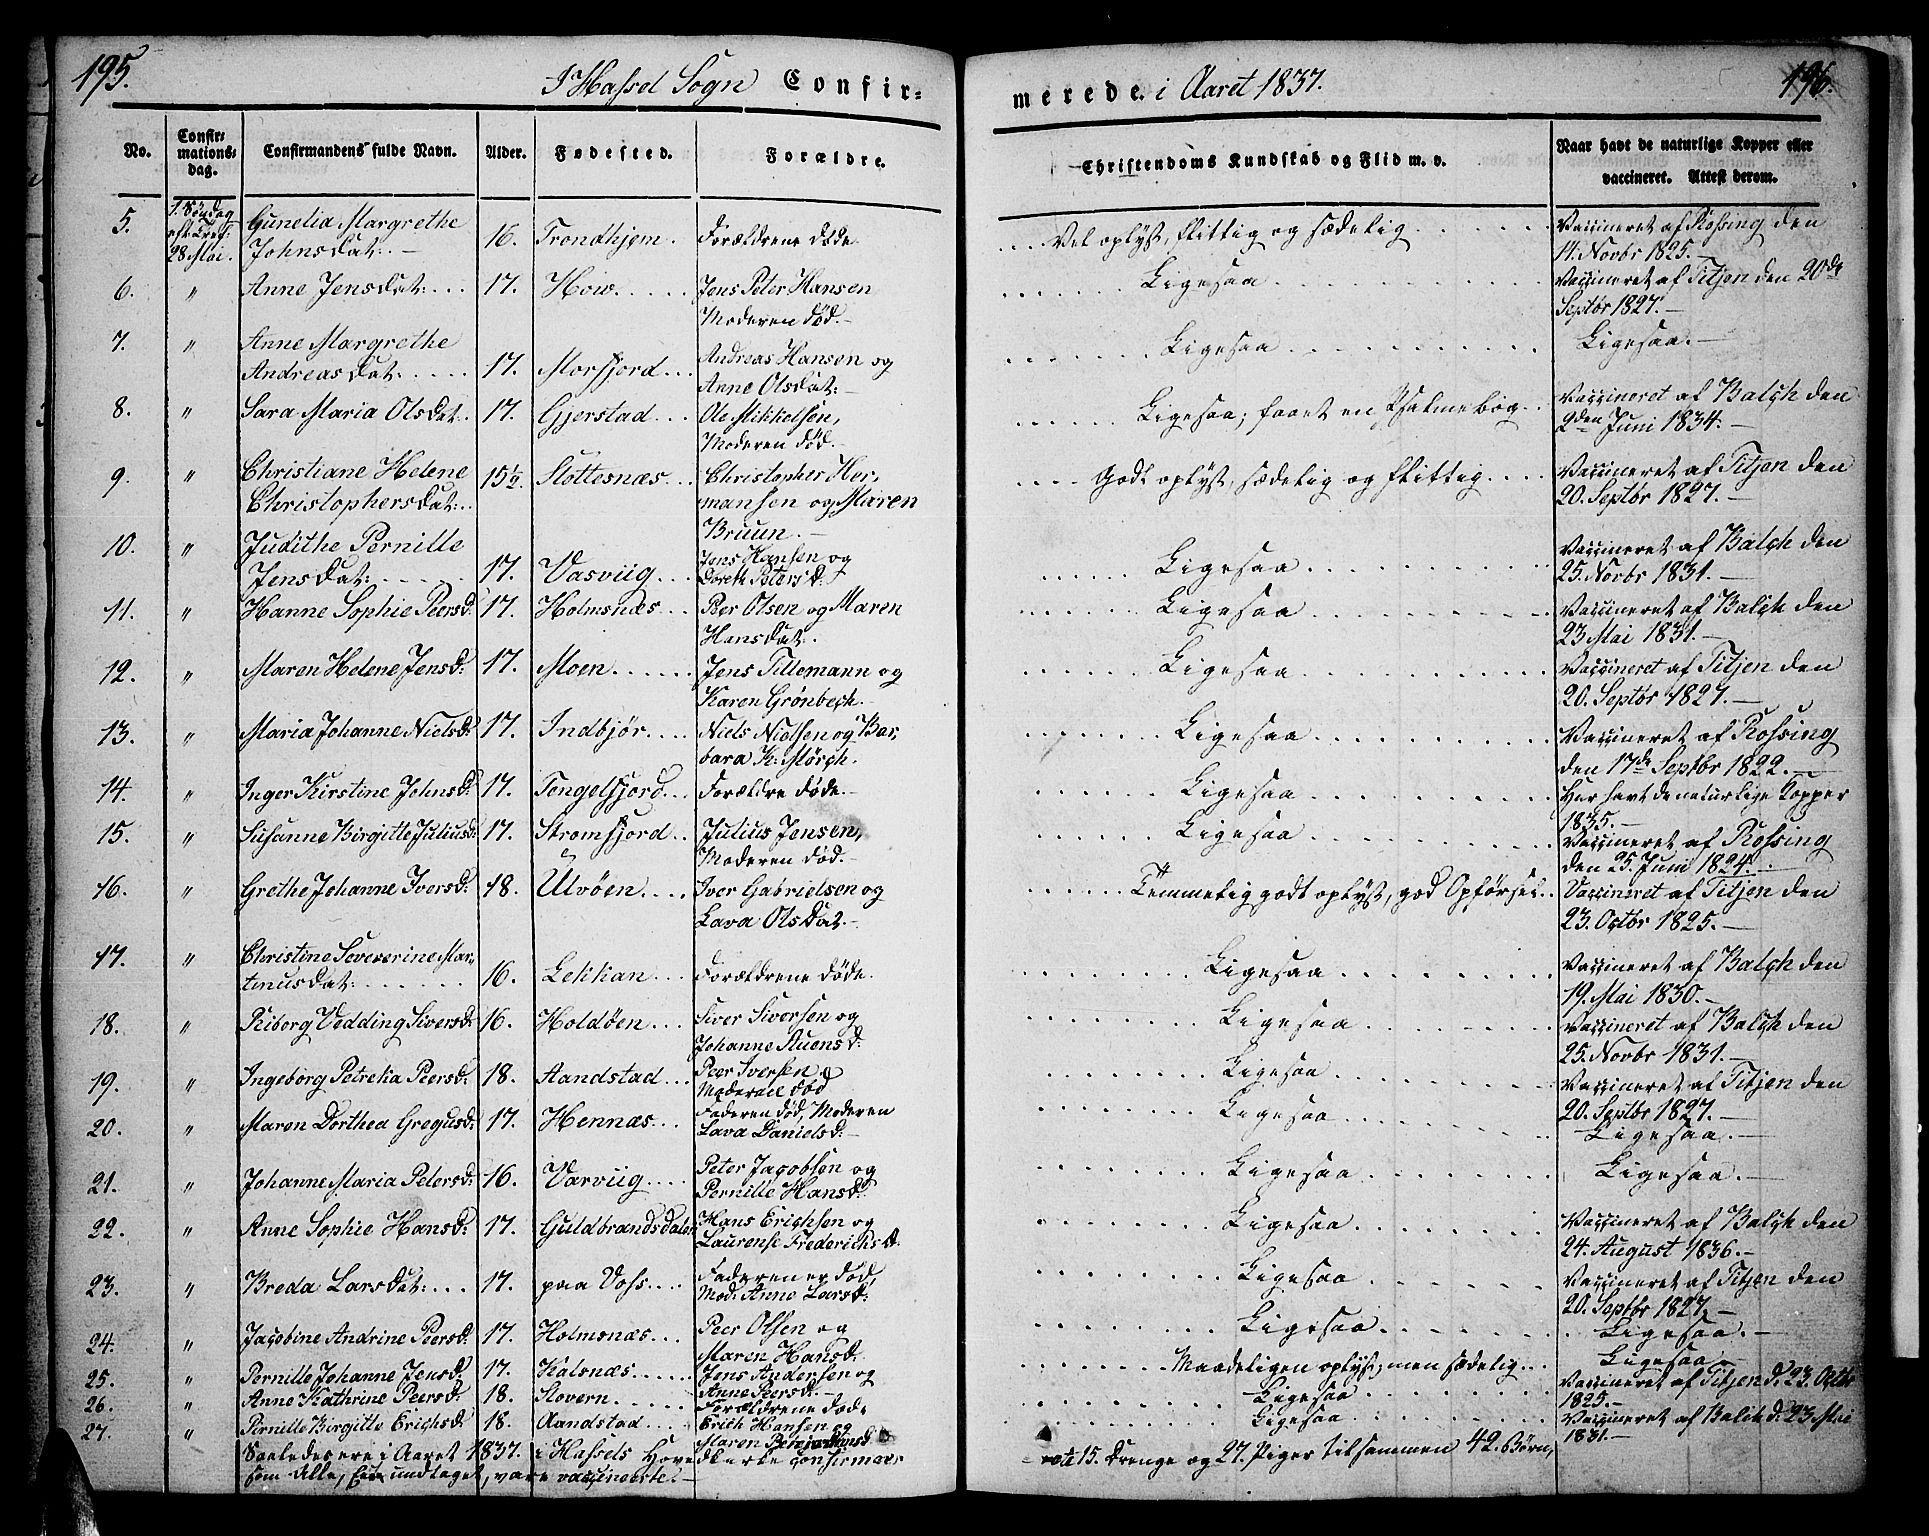 195.
I Hassel Sogn Confir-
No.
Confir-
mations-
dag.
Confirmandens fulde Navn.
Alder.
Fødested.
Forældre.
5.
1. Søndag
eft. Tref:
28 Mai.
Gunelia Margrethe
Johnsdat:
16.
Trondhjem.
Forældrene døde
6.
"
Anne Jensdat:
17.
Jens Peter Hansen
Moderen død.
7.
"
Anne Margrethe
Andreasdat:
17.
Morfjord
Andreas Hansen og
Anne Olsdat:
8.
"
Sara Maria Olsdat:
17.
Gjerstad
Ole Mikkelsen,
Moderen død.
9.
"
Christiane Helene
Christophersdat:
15½
Slottesnæs
Christopher Her-
mansen og Maren
Bruun.
10.
"
Judithe Pernille
Jensdat:
17.
Vasviig
Jens Hansen og
Doreth Petersd:
11.
"
Hanne Sophie Peersd:
17.
Holmsnæs
Peer Olsen og Maren
Hansdat:
12.
"
Maren Helene Jensd:
17.
Moen
Jens Tillemann og
Karen Grønbech.
13.
"
Maria Johanne Nielsd:
17.
Indbjør
Niels Nielsen og Bar-
bara K: Mørch.
14.
"
Inger Kirstine Johnsd:
17.
Tengelfjord
Forældre døde.
15.
"
Susanne Birgitte Juliusd:
17.
Strømfjord
Julius Jensen,
Moderen død.
16.
"
Grethe Johanne Iversd:
18.
Ulvøen
Iver Gabrielsen og
Lava Olsdat.
17.
"
Christine Severine Mar-
tinusdat:
16.
Lekkan
Forældrene døde.
18.
"
Riborg Vedding Siversd:
16.
Holdøen
Siver Siversen og
Johanne
19.
"
Ingeborg Petrika Peersd:
18.
Aandstad
Peer Iversen
Moderen død
20.
"
Maren Dorthea Gregusd:
17.
Hennæs
Faderen død, Moderen
Lava Danielsd:
21.
"
Johanne Maria Petersd:
16.
Varviig
Peter Jacobsen og
Pernille Hansd:
22.
"
Anne Sophie Hansd:
17.
Guldbrandsdalen
Hans Erichsen og
Laurense Frederichsd:
23.
"
Breda Larsdat:
17.
paa Voss
Faderen er død
Mod: Anne Larsd:
24.
"
Jacobine Andrine Peersd:
17.
Holmsnæs
Peer Olsen og
Maren Hansd:
25.
"
Pernille Johanne Jensd:
17.
Kalsnæs
Jens Andersen og
Anne Peersd:
26.
"
Anne Kathrine Peersd:
18.
Stovern
Forældrene døde
27.
"
Pernille Birgitte Erichsd:
18.
Aandstad
Erich Hansen og
Maren
Saaledes ere i Aaret 1837. i Hassels Hovedkirke confirmer-
som alle, undtaget, vare vaccinerte.
196.
merede i Aaret 1837.
Christendoms Kundskab og Flid m. v.
Naar havt de naturlige Kopper eller
vaccineret. Attest derom.
Vel oplyst, flittig og sædelig
Vaccineret af Rossing den
14. Novbr 1825.
Ligesaa
Vaccineret af Titjen den 20de
Septbr 1827.
Ligesaa
Ligesaa.
Ligesaa; faaet en Psalmebog
Vaccineret af Balch den
2den Juni 1834.
Godt oplyst, sædelig og flittig
Vaccineret af Titjen den
20. Septbr 1827.
Ligesaa
Vaccineret af Balch den
25. Novbr 1831.
Ligesaa
Vaccineret af Balch den
23 Mai 1831.
Ligesaa
Vaccineret af Titjen den
20. Septbr 1827.
Ligesaa
Vaccineret af Rossing
den 17de Septbr 1822.
Ligesaa
Har havt de naturlige Kopper
1835.
Ligesaa
Vaccineret af Rossing
den 25. Juni 1824.
Temmelig godt oplyst, god Opførsel
Vaccineret af Titjen den
23. Octbr 1825.
Ligesaa
Vaccineret af Balch den
19. Mai 1830.
Ligesaa
Vaccineret af Balch den
25. Novbr 1831.
Ligesaa
Vaccineret af Titjen den
20. Septbr 1827.
Ligesaa
Ligesaa.
Ligesaa
Ligesaa.
Ligesaa
Vaccineret af Balch den
24. August 1836.
Ligesaa
Vaccineret af Titjen den
20. Septbr 1827.
Ligesaa
Ligesaa.
Maadeligen oplyst, men sædelig
Ligesaa
Ligesaa
Vaccineret af Titjen d. 23. Octbr
1825.
Ligesaa
Vaccineret af Balch d. 23 Mai
1831.
15. Drenge og 27. Piger tilsammen 42. Børn,